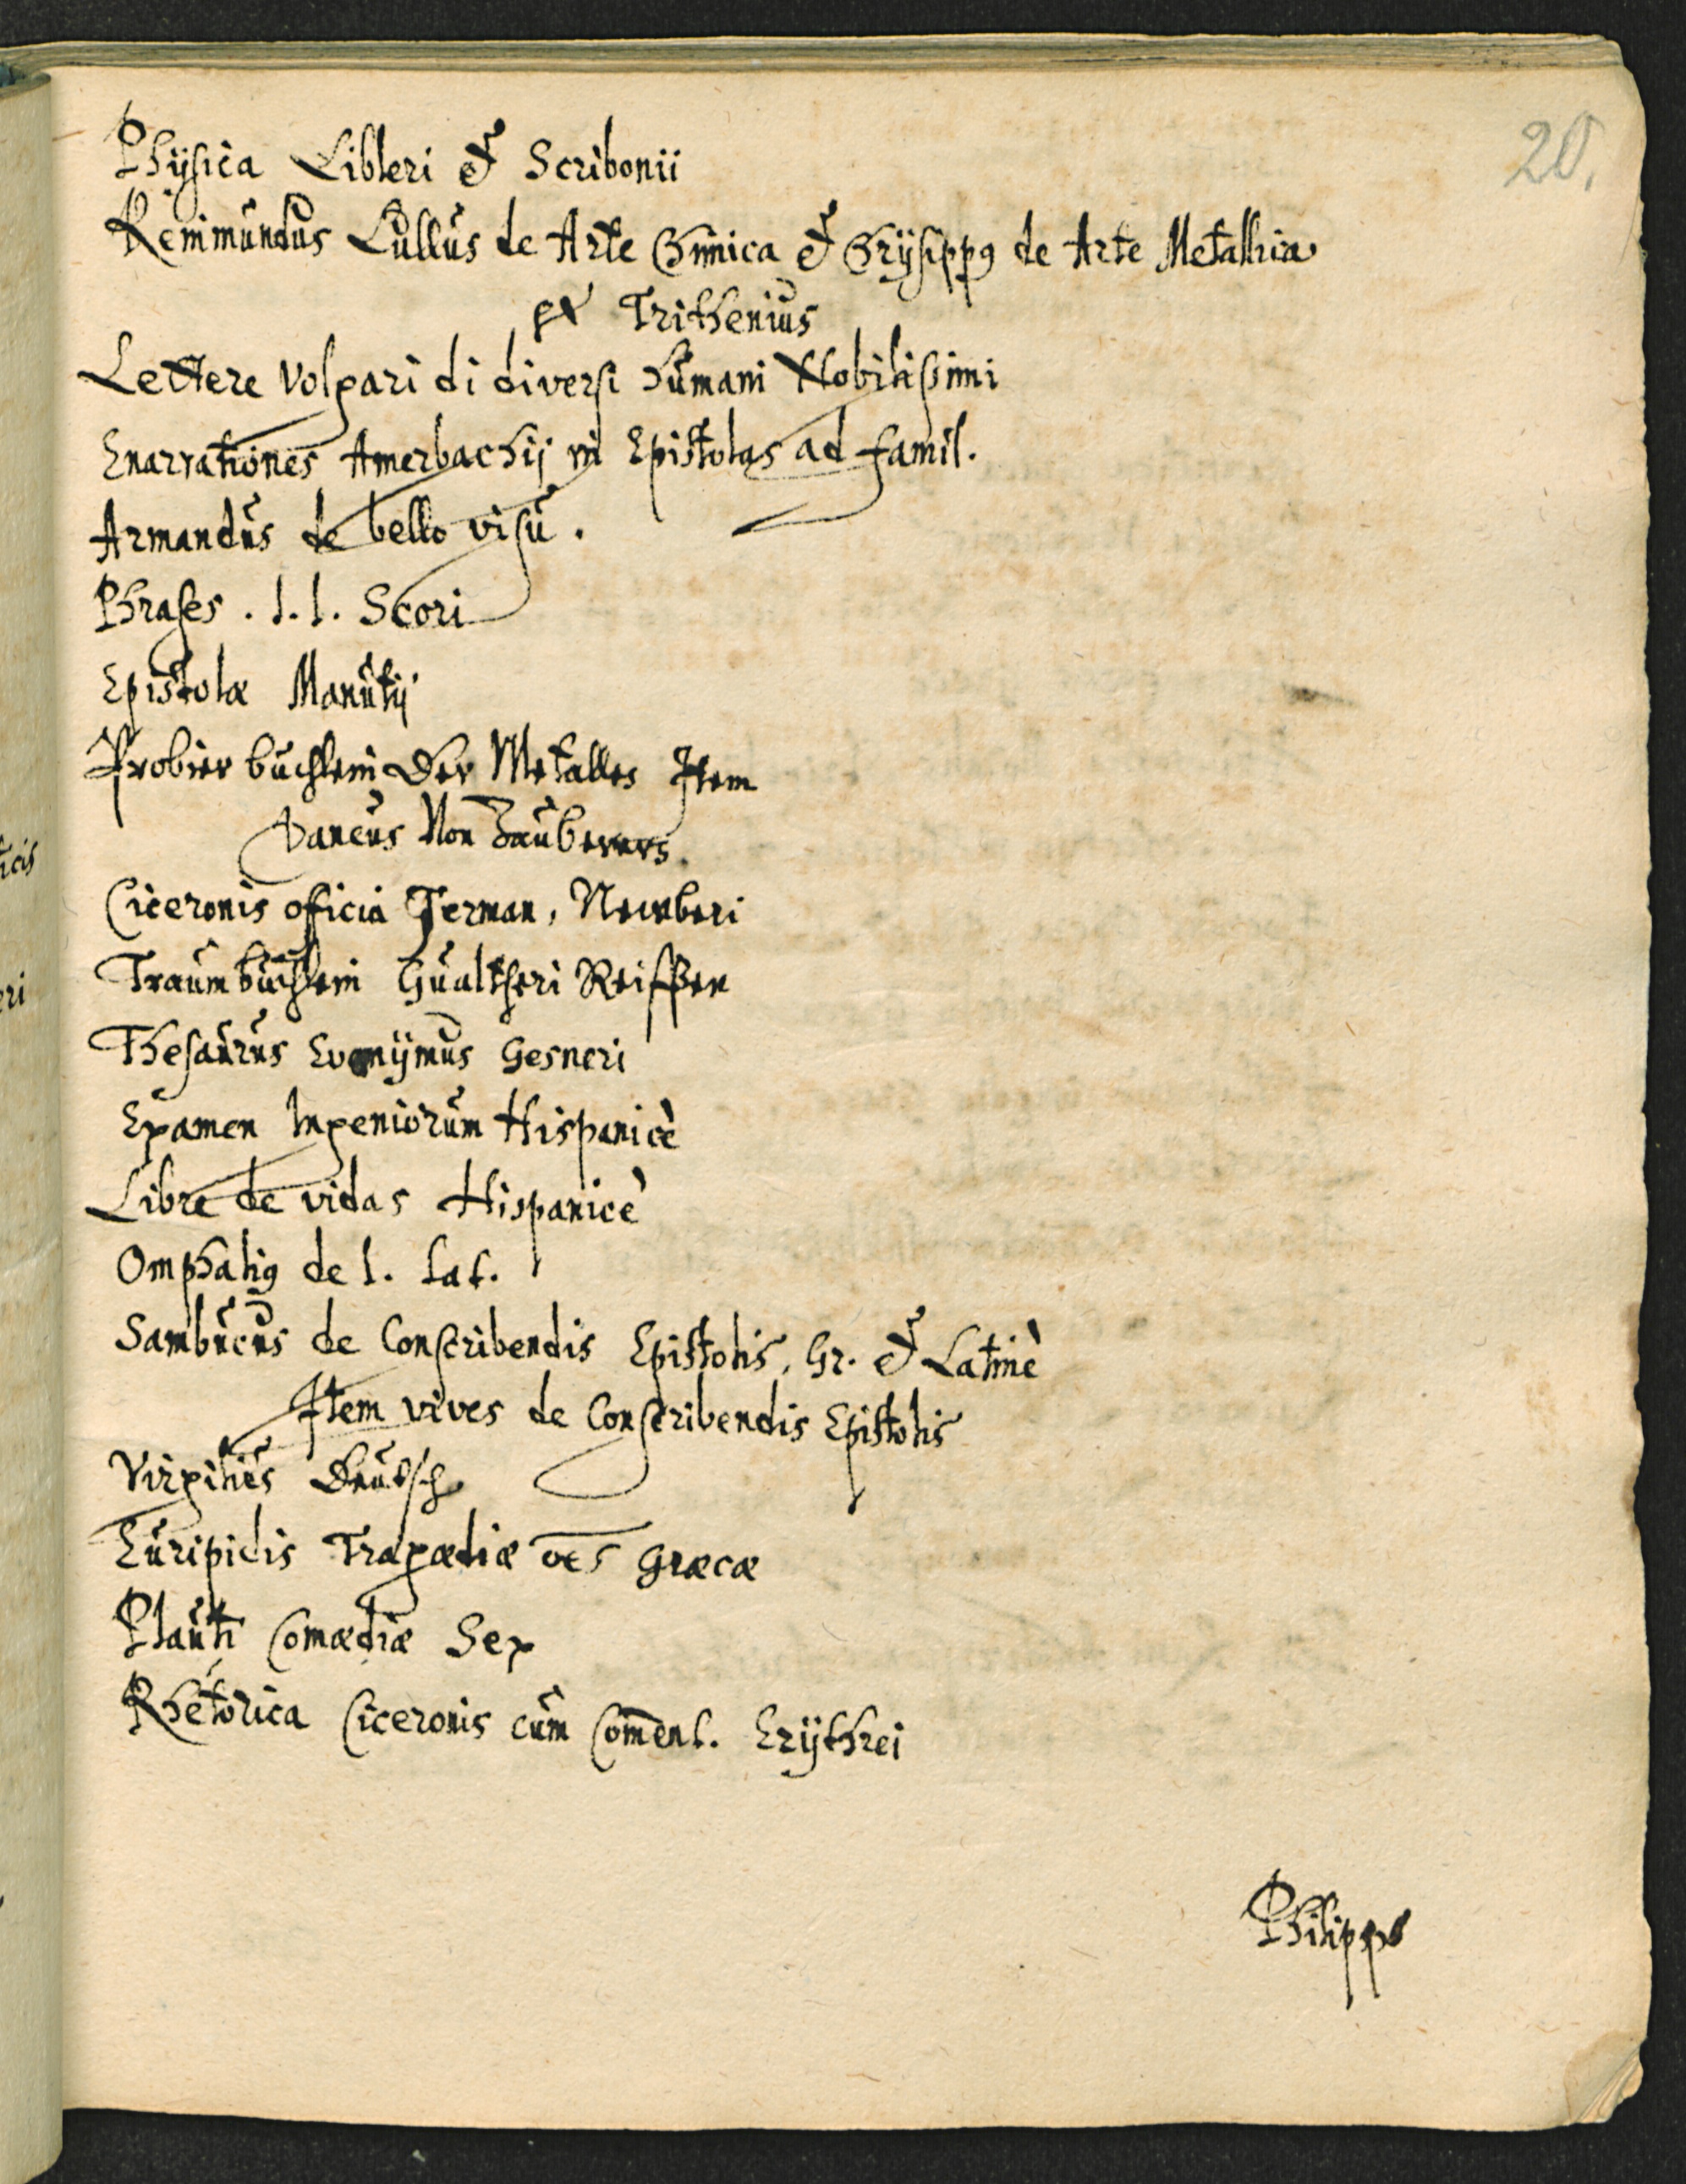 20.
Physica Libleri et Scribonii
Remmundus Lullus de Arte Chimica et Chrysippq de Arte Metallica
et Trithenius
Lettere volgari di diversi humani Nobilissimi
Enarrationes Amerbachij in Epistolas ad famil.
Armandus de bello visu.
Phrases . l. l. Scori
Epistolæ Manutij
Probier buchlein der Metalles Item
Daneus Von Zauberers.
Ciceronis officia German, Newberi
Traumbuchlein Gualtheri Reiffen
Thesaurus Evonymus Gesneri
Examen Ingeniorum Hispanicè
Libre de vidas Hispanicè
Omphaliq de l. lat.
Sambucus de Conscribendis Epistolis, Gr. et Latinè
Item vives de Conscribendis Epistolis
Virgilius Deutsch
Euripidis Tragædiæ oēs Græcæ
Plauti Comædiæ Sex
Rhetorica Ciceronis cum Com̄ent. Erythrei
Philipps